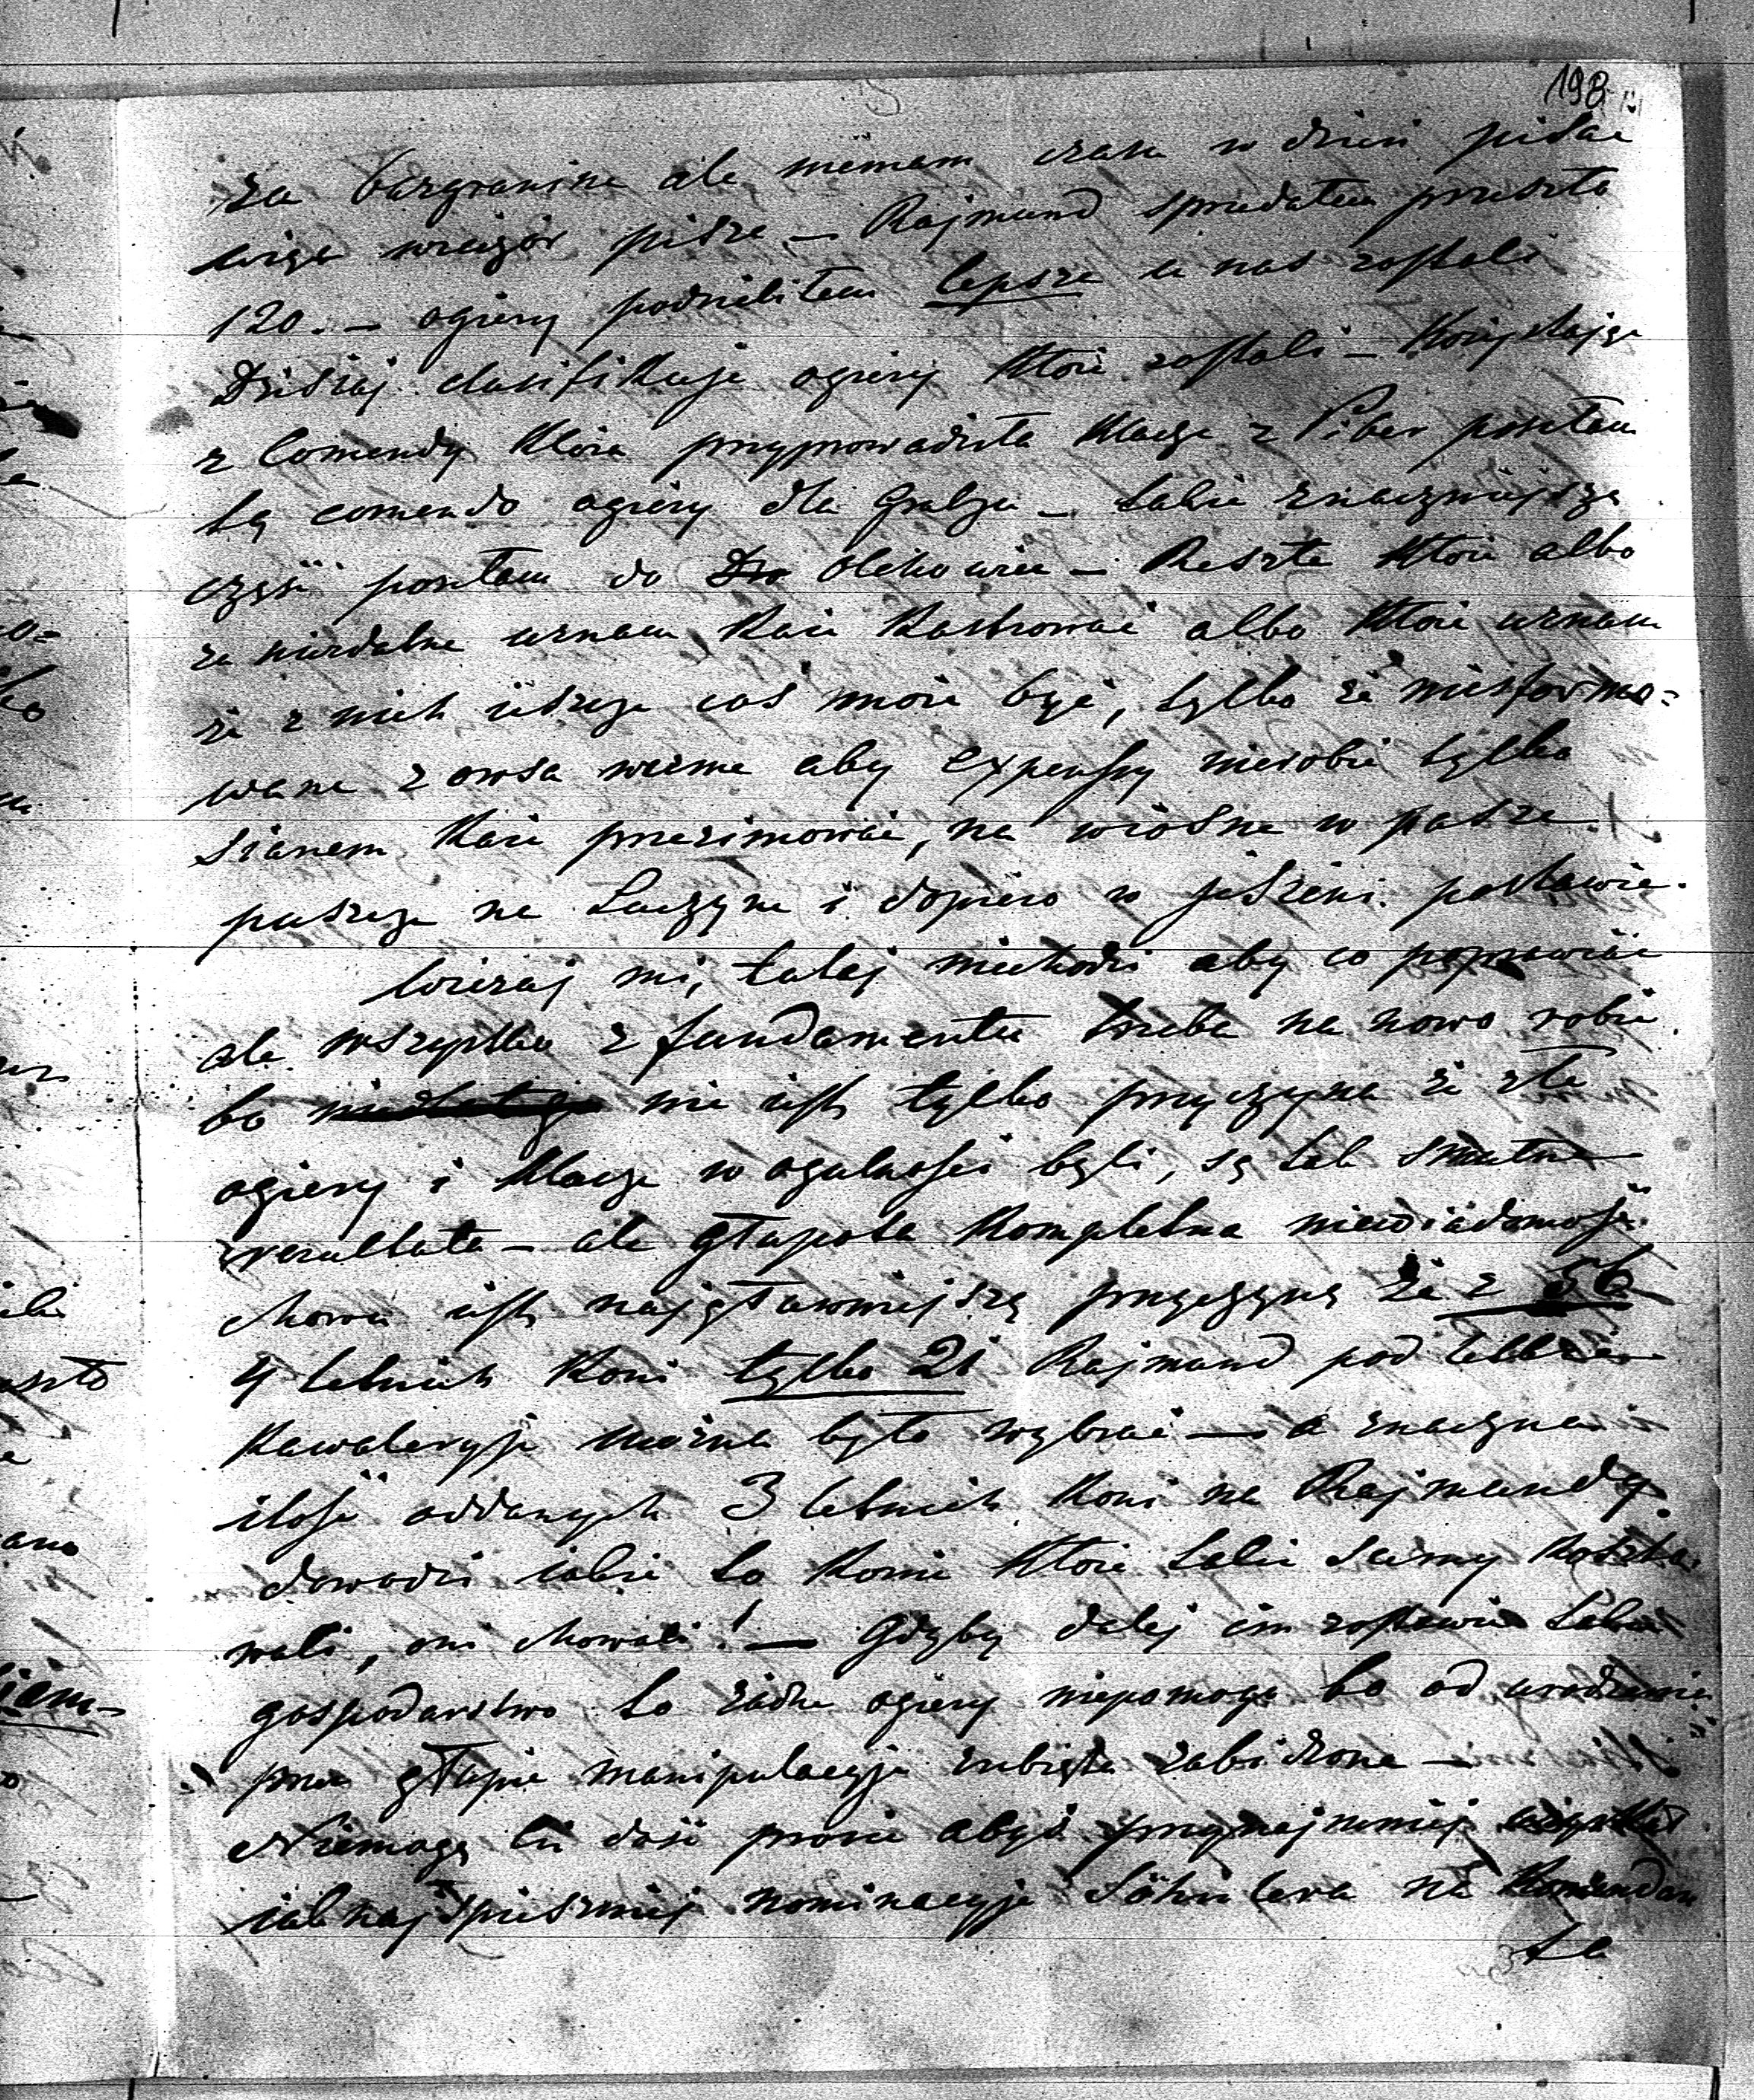 198
za bazgranine ale niemam czasu w dzień pisac
więc wieczór pisze – Rajmund sprzedałem przeszło
120. – ogiery podzieliłem lepsze u nas zostali
Dzisiaj clasifikuje ogiery które zostali – Korzystając
z Comendy która przyprowadziła klacze z Piber posełam
tą comendo ogiery dla Grabju – takie znaczniejszą
część posełam do Olchowiec – Reszte które albo
za niezdatne uznam każe kastrować albo które uznam
że z nich jeszcze coś może być, tylko że niesformo=
wane z owsa wezme aby expensy nierobić tylko
sianem każe przezimować, na wiosne w pasze
puszcze na Luczyne i dopiero w jesieni postawie.
Wierzaj mi, tutaj niechodzi aby co poprawiać
ale wszystko z fundamentu trzeba na nowo robić
bo nie jest tylko przyczyna że złe
ogiery i klacze w ogulności byli, są tak smutne
rezultata – ale głupota kompletna niewiadomość
chowu jest najgławniejszą przyczyną że z 56
4 letnich koni tylko 21 Rajmund pod lekką
kawaleryje można było wybrać – a znaczna
ilość oddanych 3 letnich koni na Rajmundy
dowodzi jakie to konie które takie sumy koszto=
wali, oni chowali! – Gdyby dalej im zostawić takie
gospodarstwo to żadne ogiery niepomogą bo od urodzenia
przez głupie manipulacyje zrebięta zabidzone –
Niemogę Ci dość prosić abyś przynajmniej uzyskał
jaknajspieszniej nominacyje Söhnlera na Komendan
ta